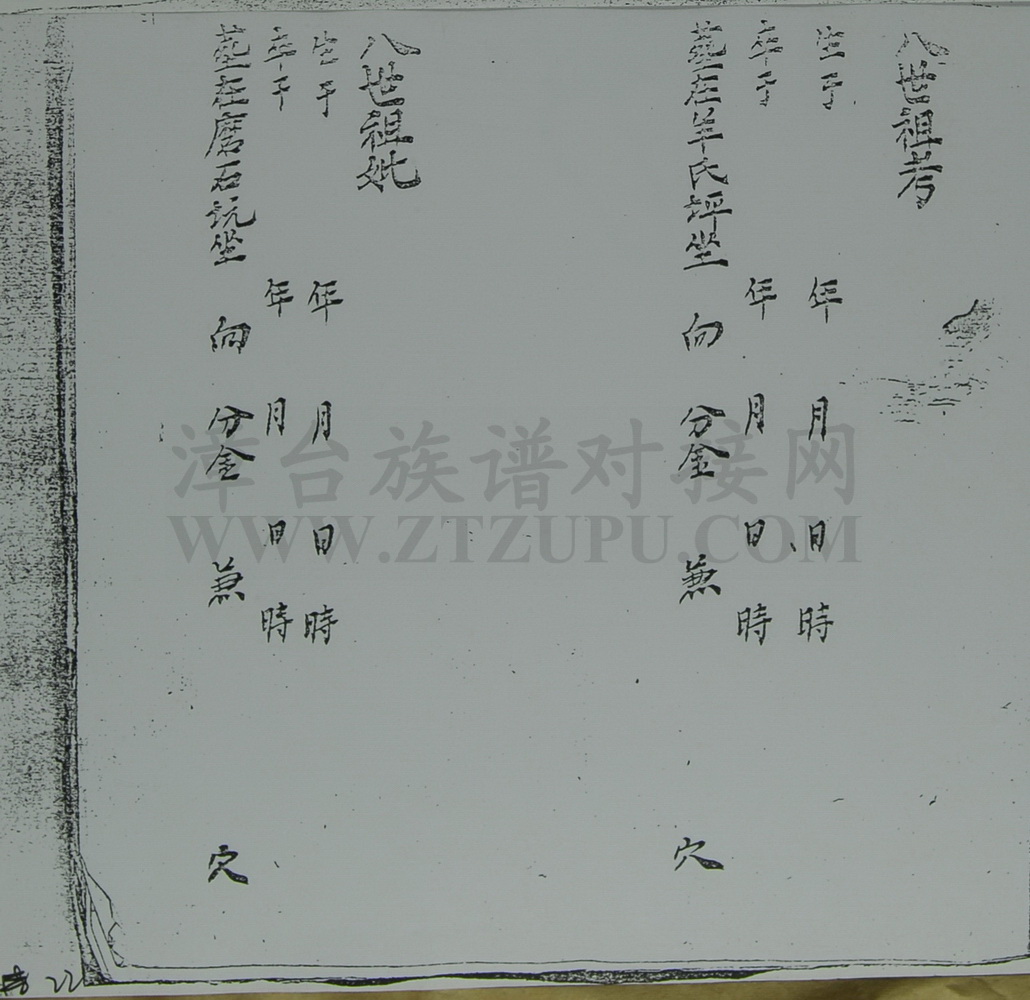 八世祖考
生于 年 月 日 時
卒于 年 月 日 時
墓在羊氏坪坐 向 分金 兼 穴
八世祖妣
生于 年 月 日 時
卒于 年 月 日 時
墓在磨石坑坐 向 分金 兼 穴
漳台族谱对接网
WWW.ZTZUPU.COM
22